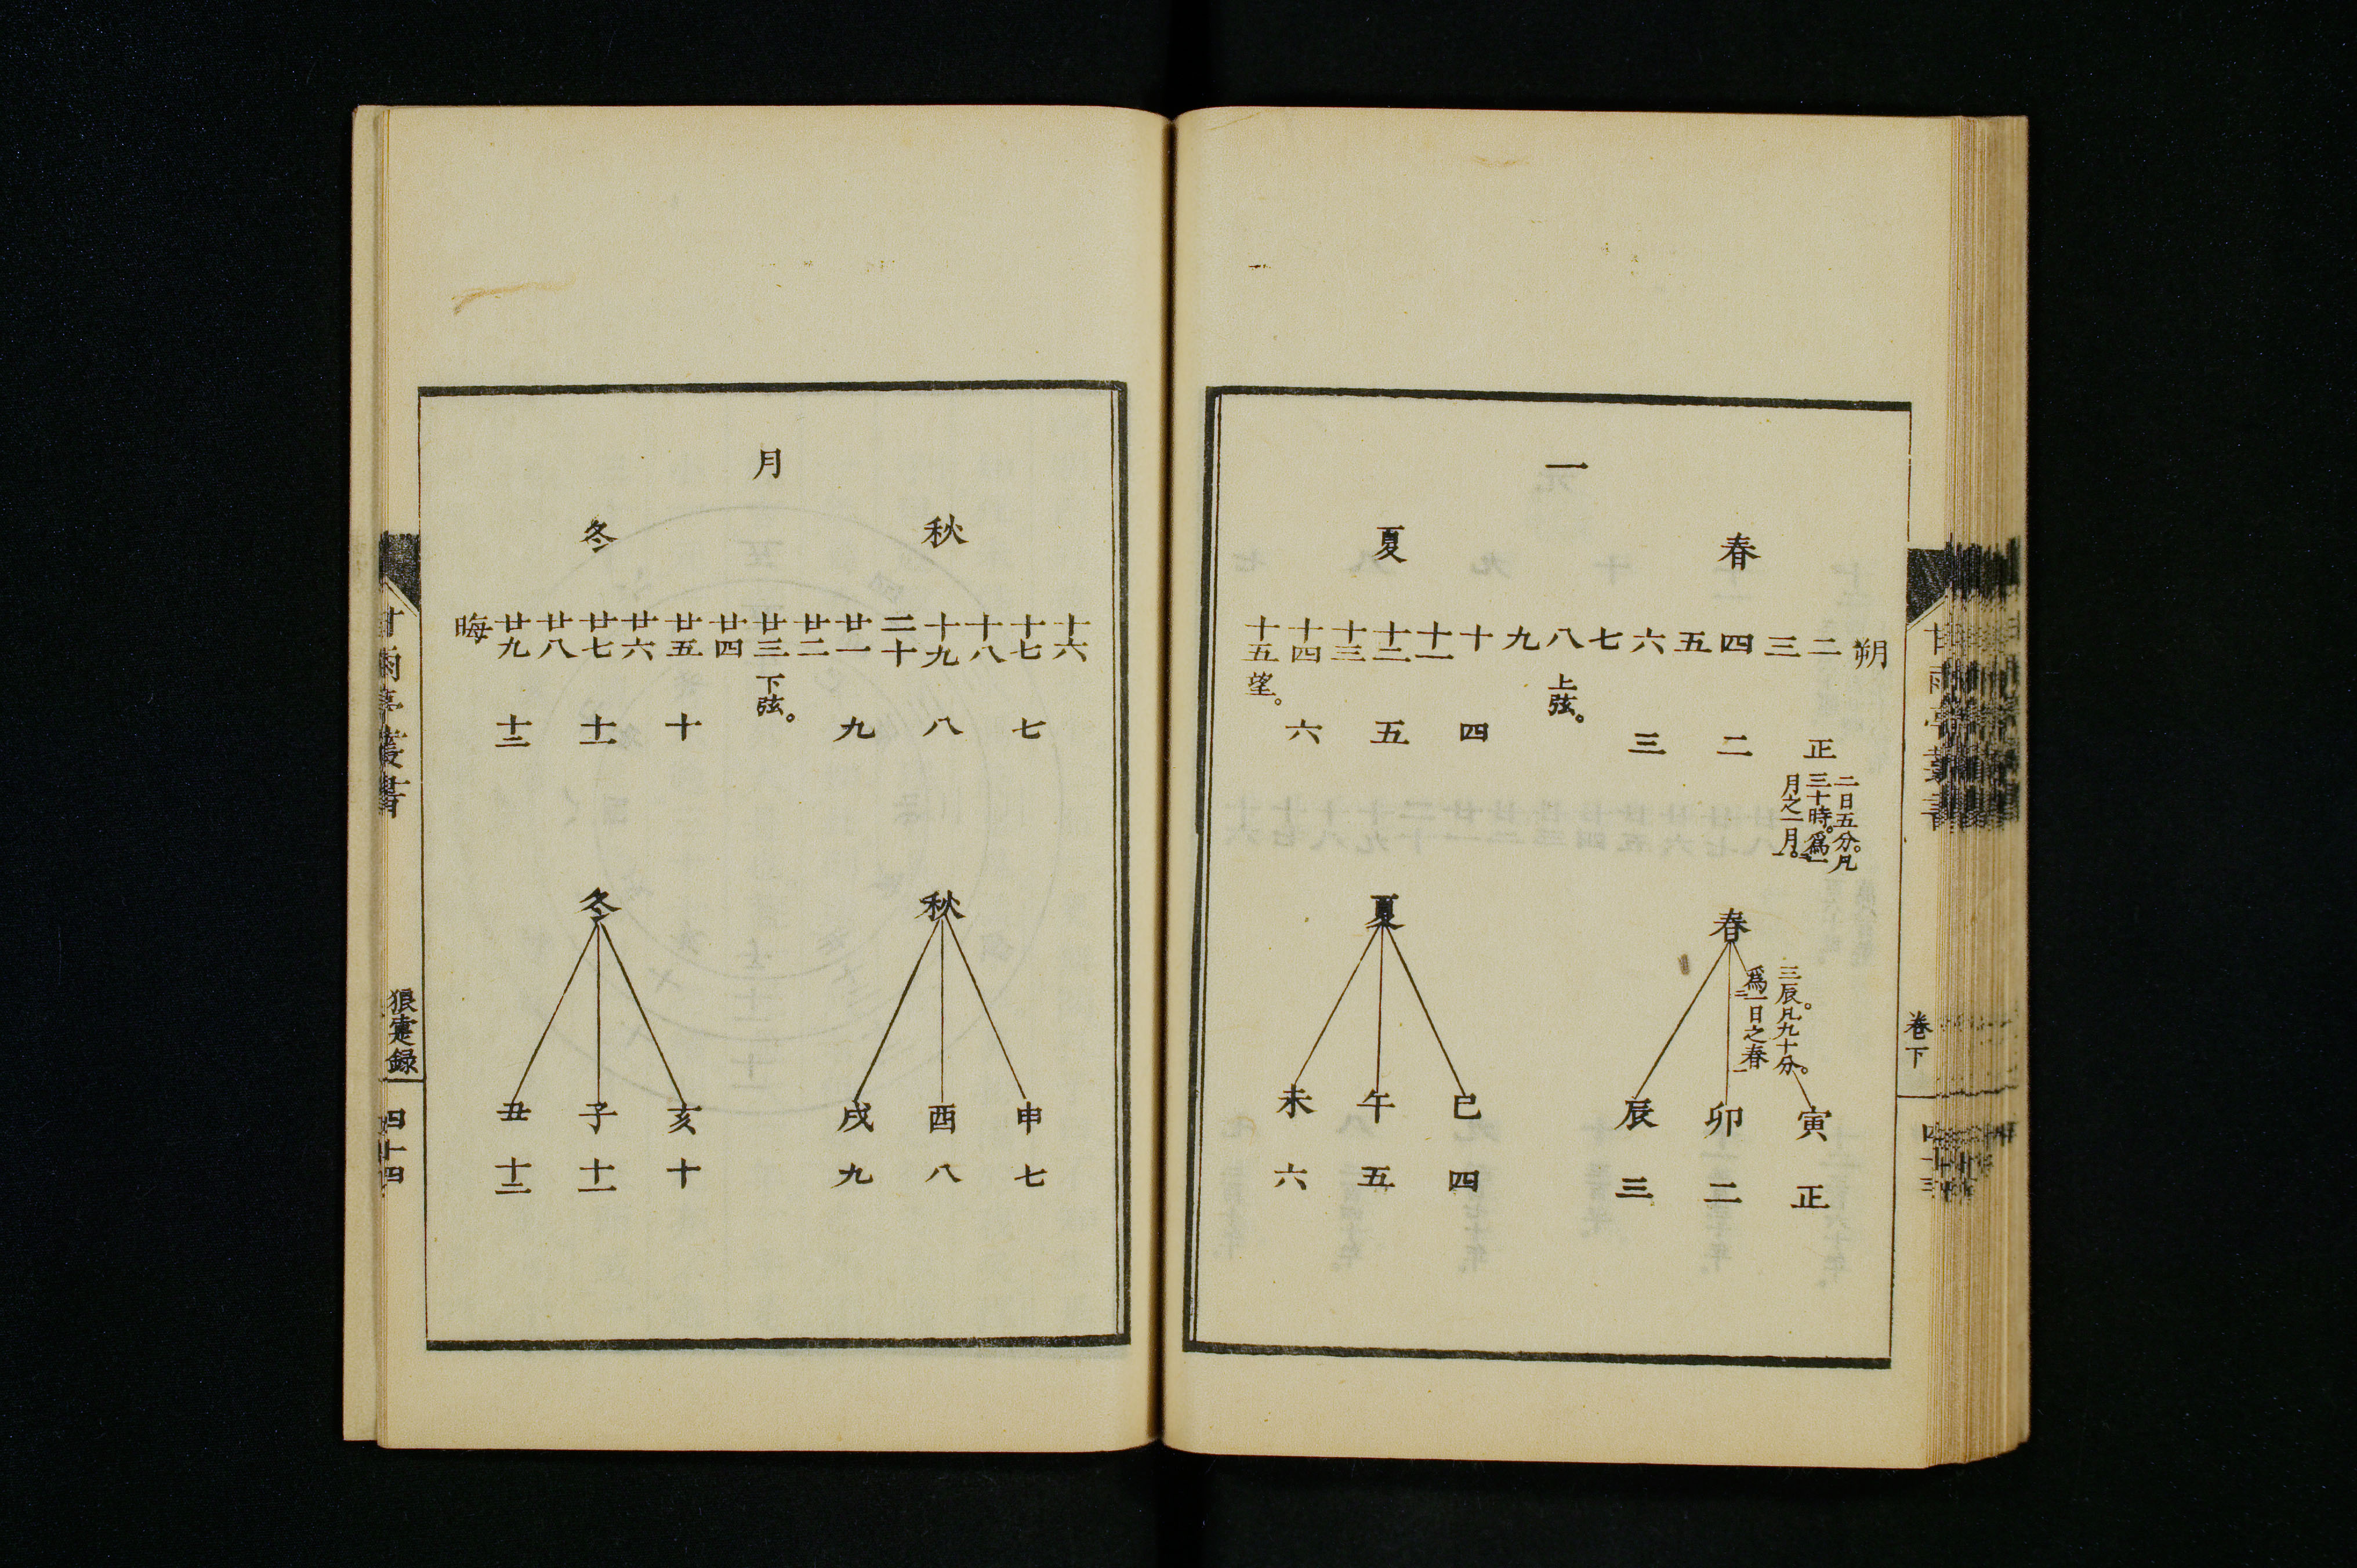 一
春
夏
朔
二
三
四
五
六
七
八 上弦。
九
十
十一
十二
十三
十四
十五 望。
正
二日五分。凡
三十時。爲一
月之一月。
二
三
四
五
六
春
三辰。凡九十分。
爲一日之春
寅 正
卯 二
辰 三
夏
巳 四
午 五
未 六
卷下
月
秋
冬
十六
十七
十八
十九
二十
廿一
廿二
廿三 下弦。
廿四
廿五
廿六
廿七
廿八
廿九
晦
七
八
九
十
十一
十二
秋
申 七
酉 八
戌 九
冬
亥 十
子 十一
丑 十二
甘雨亭叢書
狼疐録
四十四